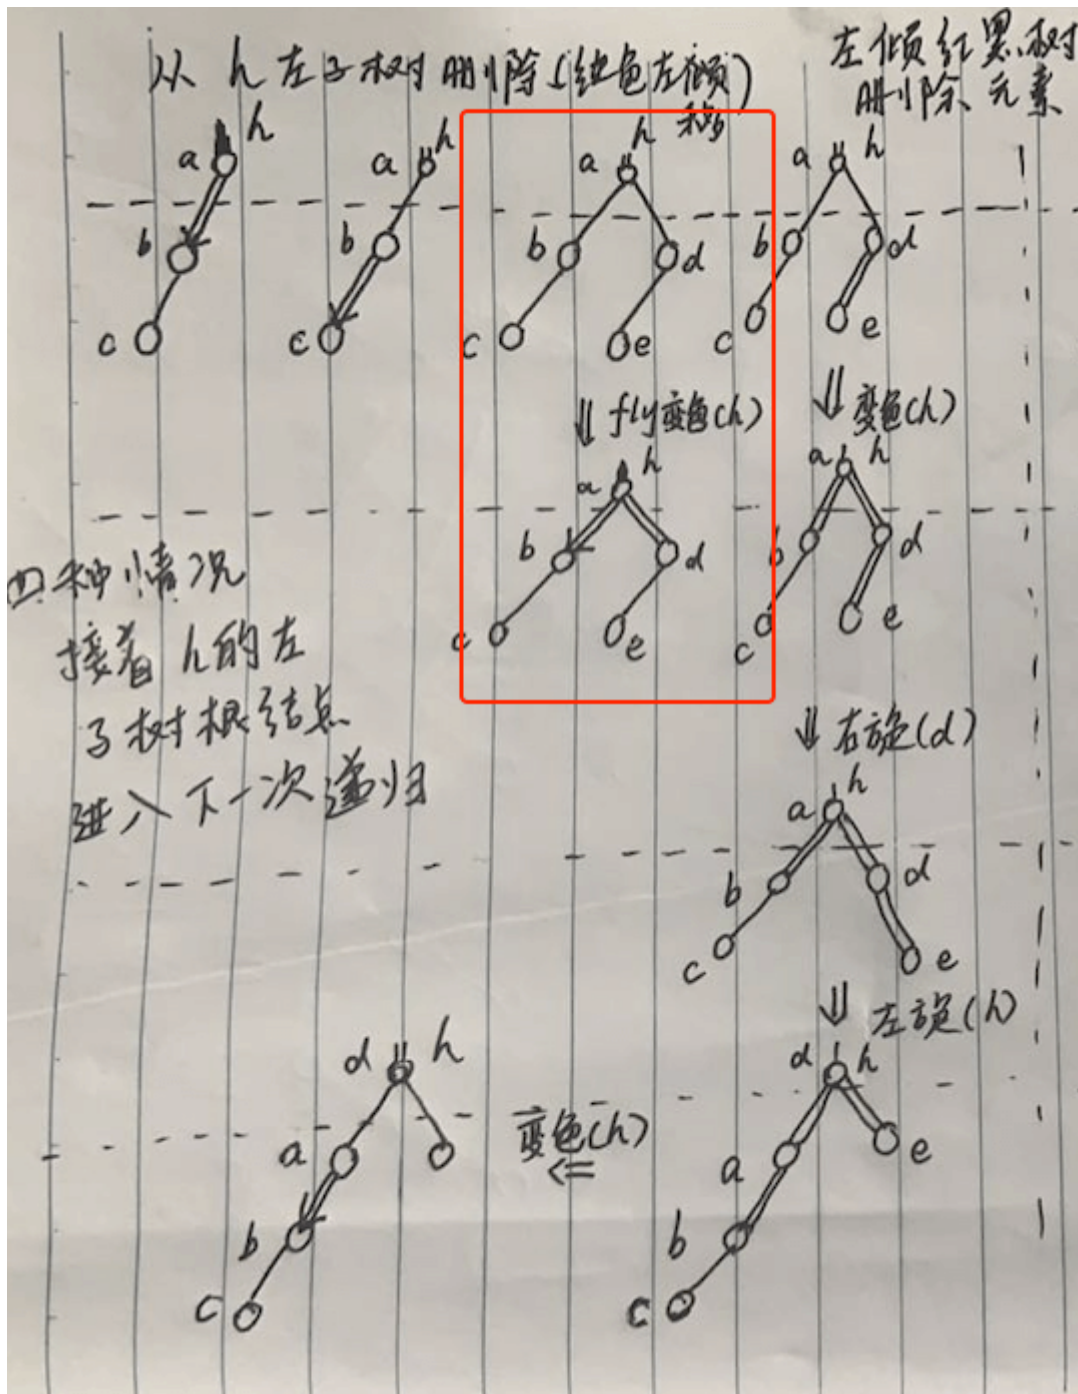 左倾红黑树
删除元素
从 h 左子树删除(红色左倾
移)
a h
b
c
a h
b
c
a h
b d
c e
a h
b d
c e
⇓ fly变色(h)
⇓ 变色(h)
a h
b d
c e
a h
b d
c e
四种情况
接着 h的左
子树根结点
进入下一次递归
⇓ 右旋(d)
a h
b d
c e
⇓ 左旋(h)
d h
a e
b
c
变色(h)
⇐
d h
a
b
c